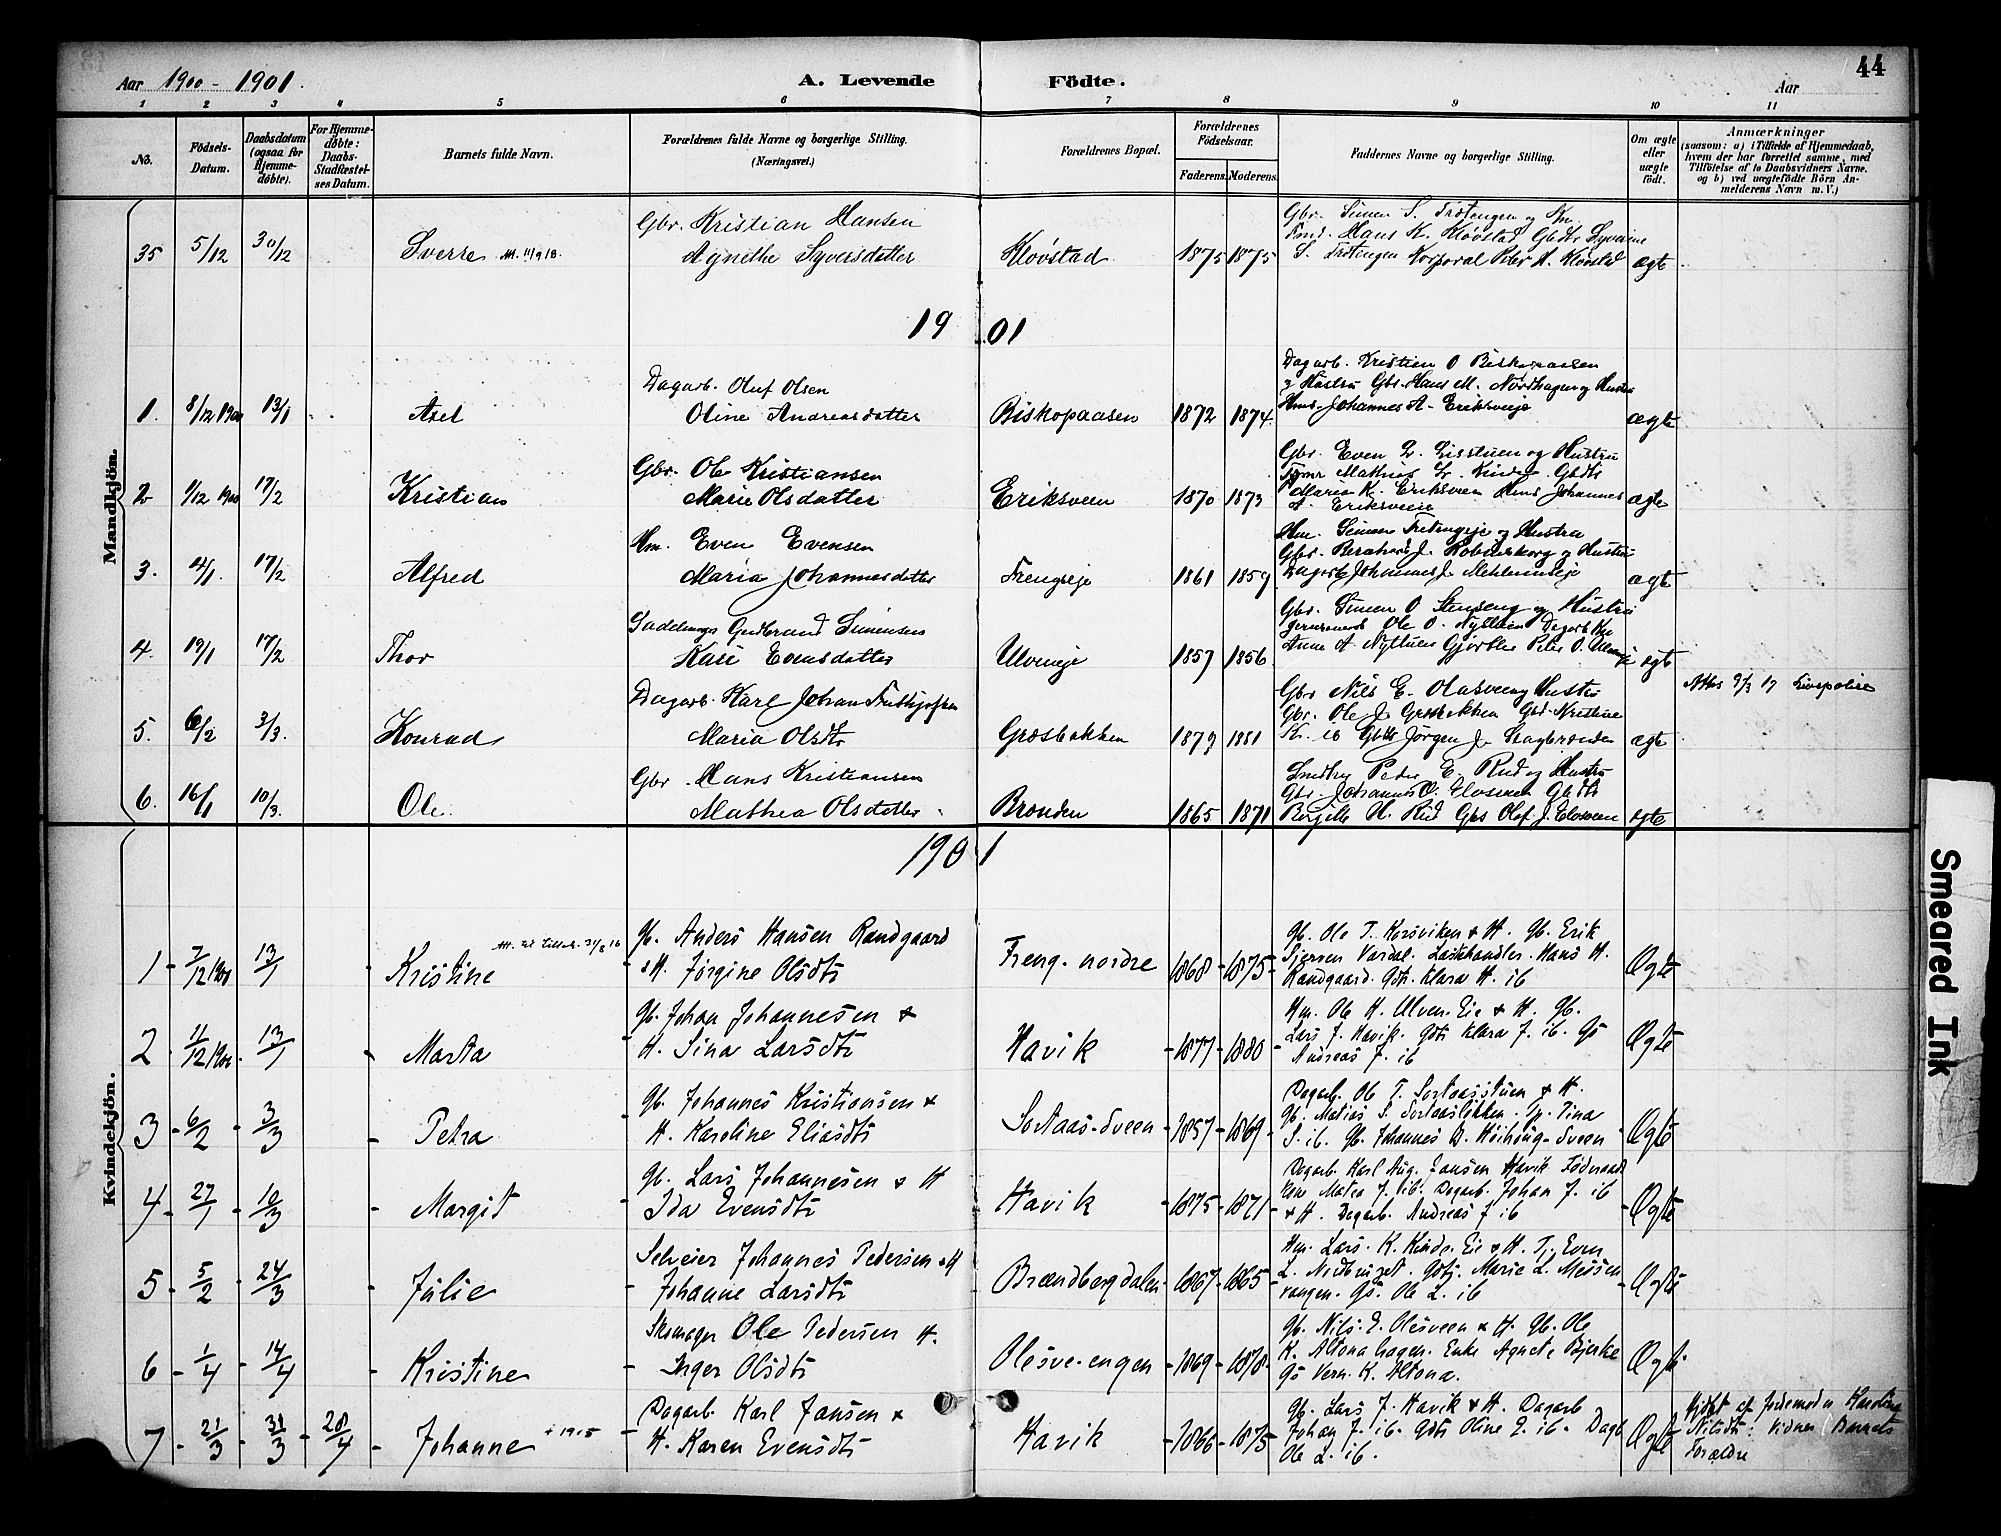 Aar 1900 - 1901.
A. Levende Födte.
Aar
44
1 2 3 4 5 6 7 8 9 10 11
No.
Födsels-Datum.
Daabsdatum (ogsaa for Hjemme-döbte).
For Hjemme-döbte: Daabs-Stadfæstel-ses Datum.
Barnets fulde Navn.
Forældrenes fulde Navne og borgerlige Stilling.
(Næringsvei.)
Forældrenes Bopæl.
Forældrenes Födselsaar.
Faderens. Moderens.
Faddernes Navne og borgerlige Stilling.
Om ægte eller uægte födt.
Anmærkninger
(saasom: a) i Tilfælde af Hjemmedaab,
hvem der har forrettet samme, med
Tilföielse af to Daabsvidners Navne.
og b) ved uægtefödte Börn An-
melderens Navn m. V.)
Mandkjön.
35 5/12 30/12 Sverre Att. 11/9 18.
Gbr. Kristian Hansen
Agnethe Syversdatter
Kløvstad 1875 1875
Gbr. Simen S. Trøtengen og Km.
Hans K. Kløvstad Gbdtr Syverine
S. Trøtengen Korporal Peter A. Kløvstad
ægte
1901
1. 8/12 1900 13/1 Axel
Dagarb. Oluf Olsen
Oline Andreasdatter
Biskopaasen 1872 1874
Dagarb. Kristian O Biskopaasen
og Hustru Gbr. Hans M. Nordhagen og Hustru
Hms. Johannes A. Eriksveeje
ægte
2 1/12 1900 17/2 Kristian
Gbr. Ole Kristiansen
Marie Olsdatter
Eriksveen 1870 1873
Gbr. Even L. Lisstuen og Hustru
Mathias L. Kinde Gbdtr
Maria K. Eriksveen Hms Johannes
A. Eriksveeje
ægte
3. 4/1. 17/2 Alfred
Hm. Even Evensen
Maria Johannesdatter
Frengseje 1861 1859
Hm. Simen Fretengeje og Hustru
Gbr. Bernhard J. og Hustru
Dagarb. Johannes J.
ægte
4. 19/1 17/2 Thor
Gudbrand Simensen
Kari Evensdatter
Ulveneje 1857 1856
Gbr. Simen O. Stenseng og Hustru
Ole O. Nyttuen Dagarb Km
Anne A. Nyttuen Gjørtler Peter O.
ægte
5. 6/2 3/3. Konrad
Dagarb. Karl Johan Frithjofsen
Maria Olsdtr
Grøsbakken 1879 1881
Gbr Nils E. Olasveen og Hustr
Gbr. Ole J. Grøsbakken Gbd. Kristine
K. ib Gbds Jørgen J.
ægte
Attes 9/3 17
6. 16/1 10/3. Ole
Gbr Hans Kristiansen
Mathea Olsdatter
Brønden 1865 1871
Peder E. Rud og Hustru
Gbr. Johannes O. Elosveen Gbdtr
Birgitte H. Rud Gbs Olaf J. Elosveen
ægte
1901
Kvindekjön.
1 7/12 1900 13/1 Kristine Att. 31/8 16
Gb. Anders Hansen Randgaard
& H. Jørgine Olsdtr
Freng. nordre 1868 1875
Gb. Ole T. Korsviken & H. Gb. Erik
Sjersen Vardal. Hans H.
Randgaard. Gdtr. Klara H. ib
Ægte
2 11/12 1900 13/1 Marta
Gb. Johan Johannesen &
H. Sina Larsdtr
Havik 1877 1880
Hm. Ole H. Ulven-Eie & H. Gb.
Lars J. Havik. Gdtr Klara J. ib. Gs
Andreas J. ib
Ægte
3 6/2 3/3 Petra
Gb. Johannes Kristiansen &
H. Karoline Eliasdtr
Sortaas-Sveen 1857 1869
Dagarb. Ole T. Sortaasstuen & H.
Gb. Matias S. Sortaasløkken. Pg. Tina
S. ib. Gb. Johannes B. Høihaug-Sveen
Ægte
4 27/1 10/3 Margit
Gb. Lars Johannesen & H
Ida Evensdtr
Havik 1875 1871
Dagarb. Karl Aug. Jansen Havik. Føderaads
kone Matea J. ib. Dagarb. Johan J. ib
& H. Dagarb. Andreas J ib
Ægte
5 5/2 24/3 Julie
Selveier Johannes Pedersen & H
Johanne Larsdtr
Brændbergdalen 1867 1865
Hm. Lars. K. Kinde-Eie & H. Tj. Even
L. Nordbriget. Gdtj. Marie L. Messen
vangen. Gs. Ole L. ib
Ægte
6 1/4 14/4 Kristine
Skomager Ole Pedersen H.
Inger Olsdtr
Olesve-engen 1869 1878
Gb. Nils. E. Olesveen & H. Gb. Ole
K. Altonahagen. Enke Agnete Bjerke
Gs Vern. K. Altona.
Ægte
7 21/3 31/3 28/4 Johanne + 1915
Dagarb. Karl Jansen &
H. Karen Evensdtr
Havik 1866 1875
Gb. Lars J. Havik & H. Dagarb
Johan J. ib. Gdtr Oline E. ib. Dagb
Ole L. ib.
Ægte
Hjdøbt af Jordemoder Karoline
Nilsdtr: Vidner Barnets
Forældre
Smeared Ink